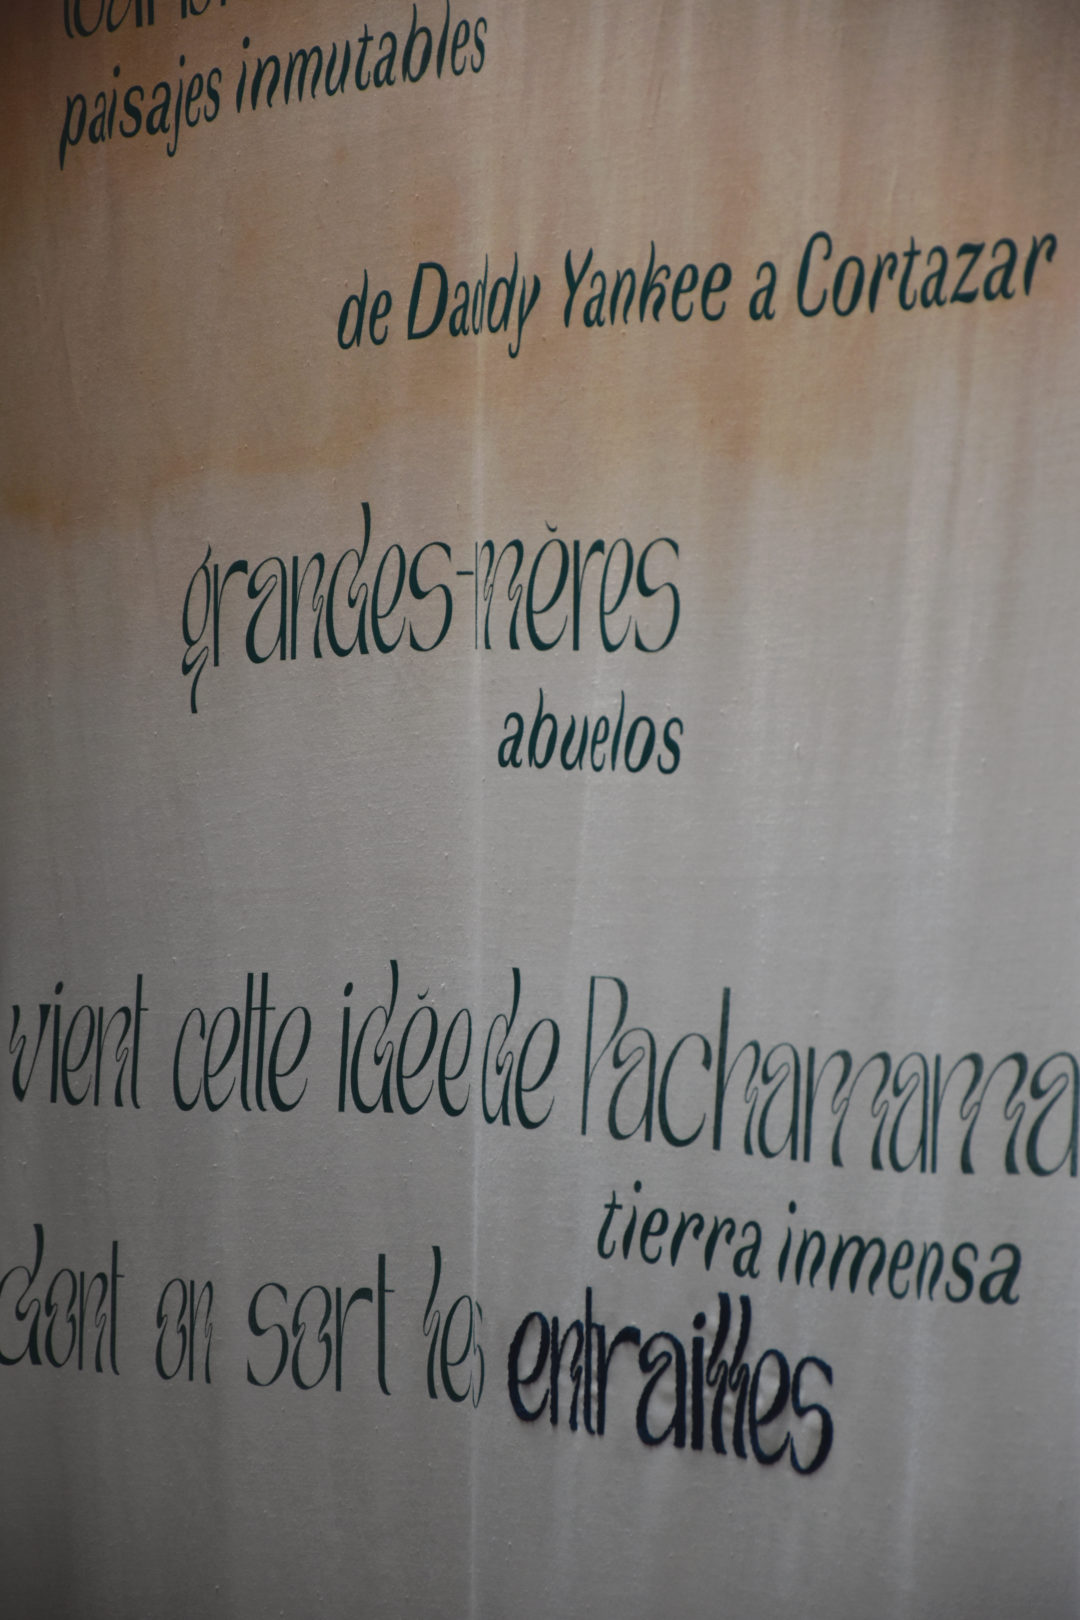 paisajes inmutables
de Daddy Yankee a Cortazar
grandes-mères
abuelos
vient cette idée de Pachamama
tierra inmensa
dont on sort les entrailles